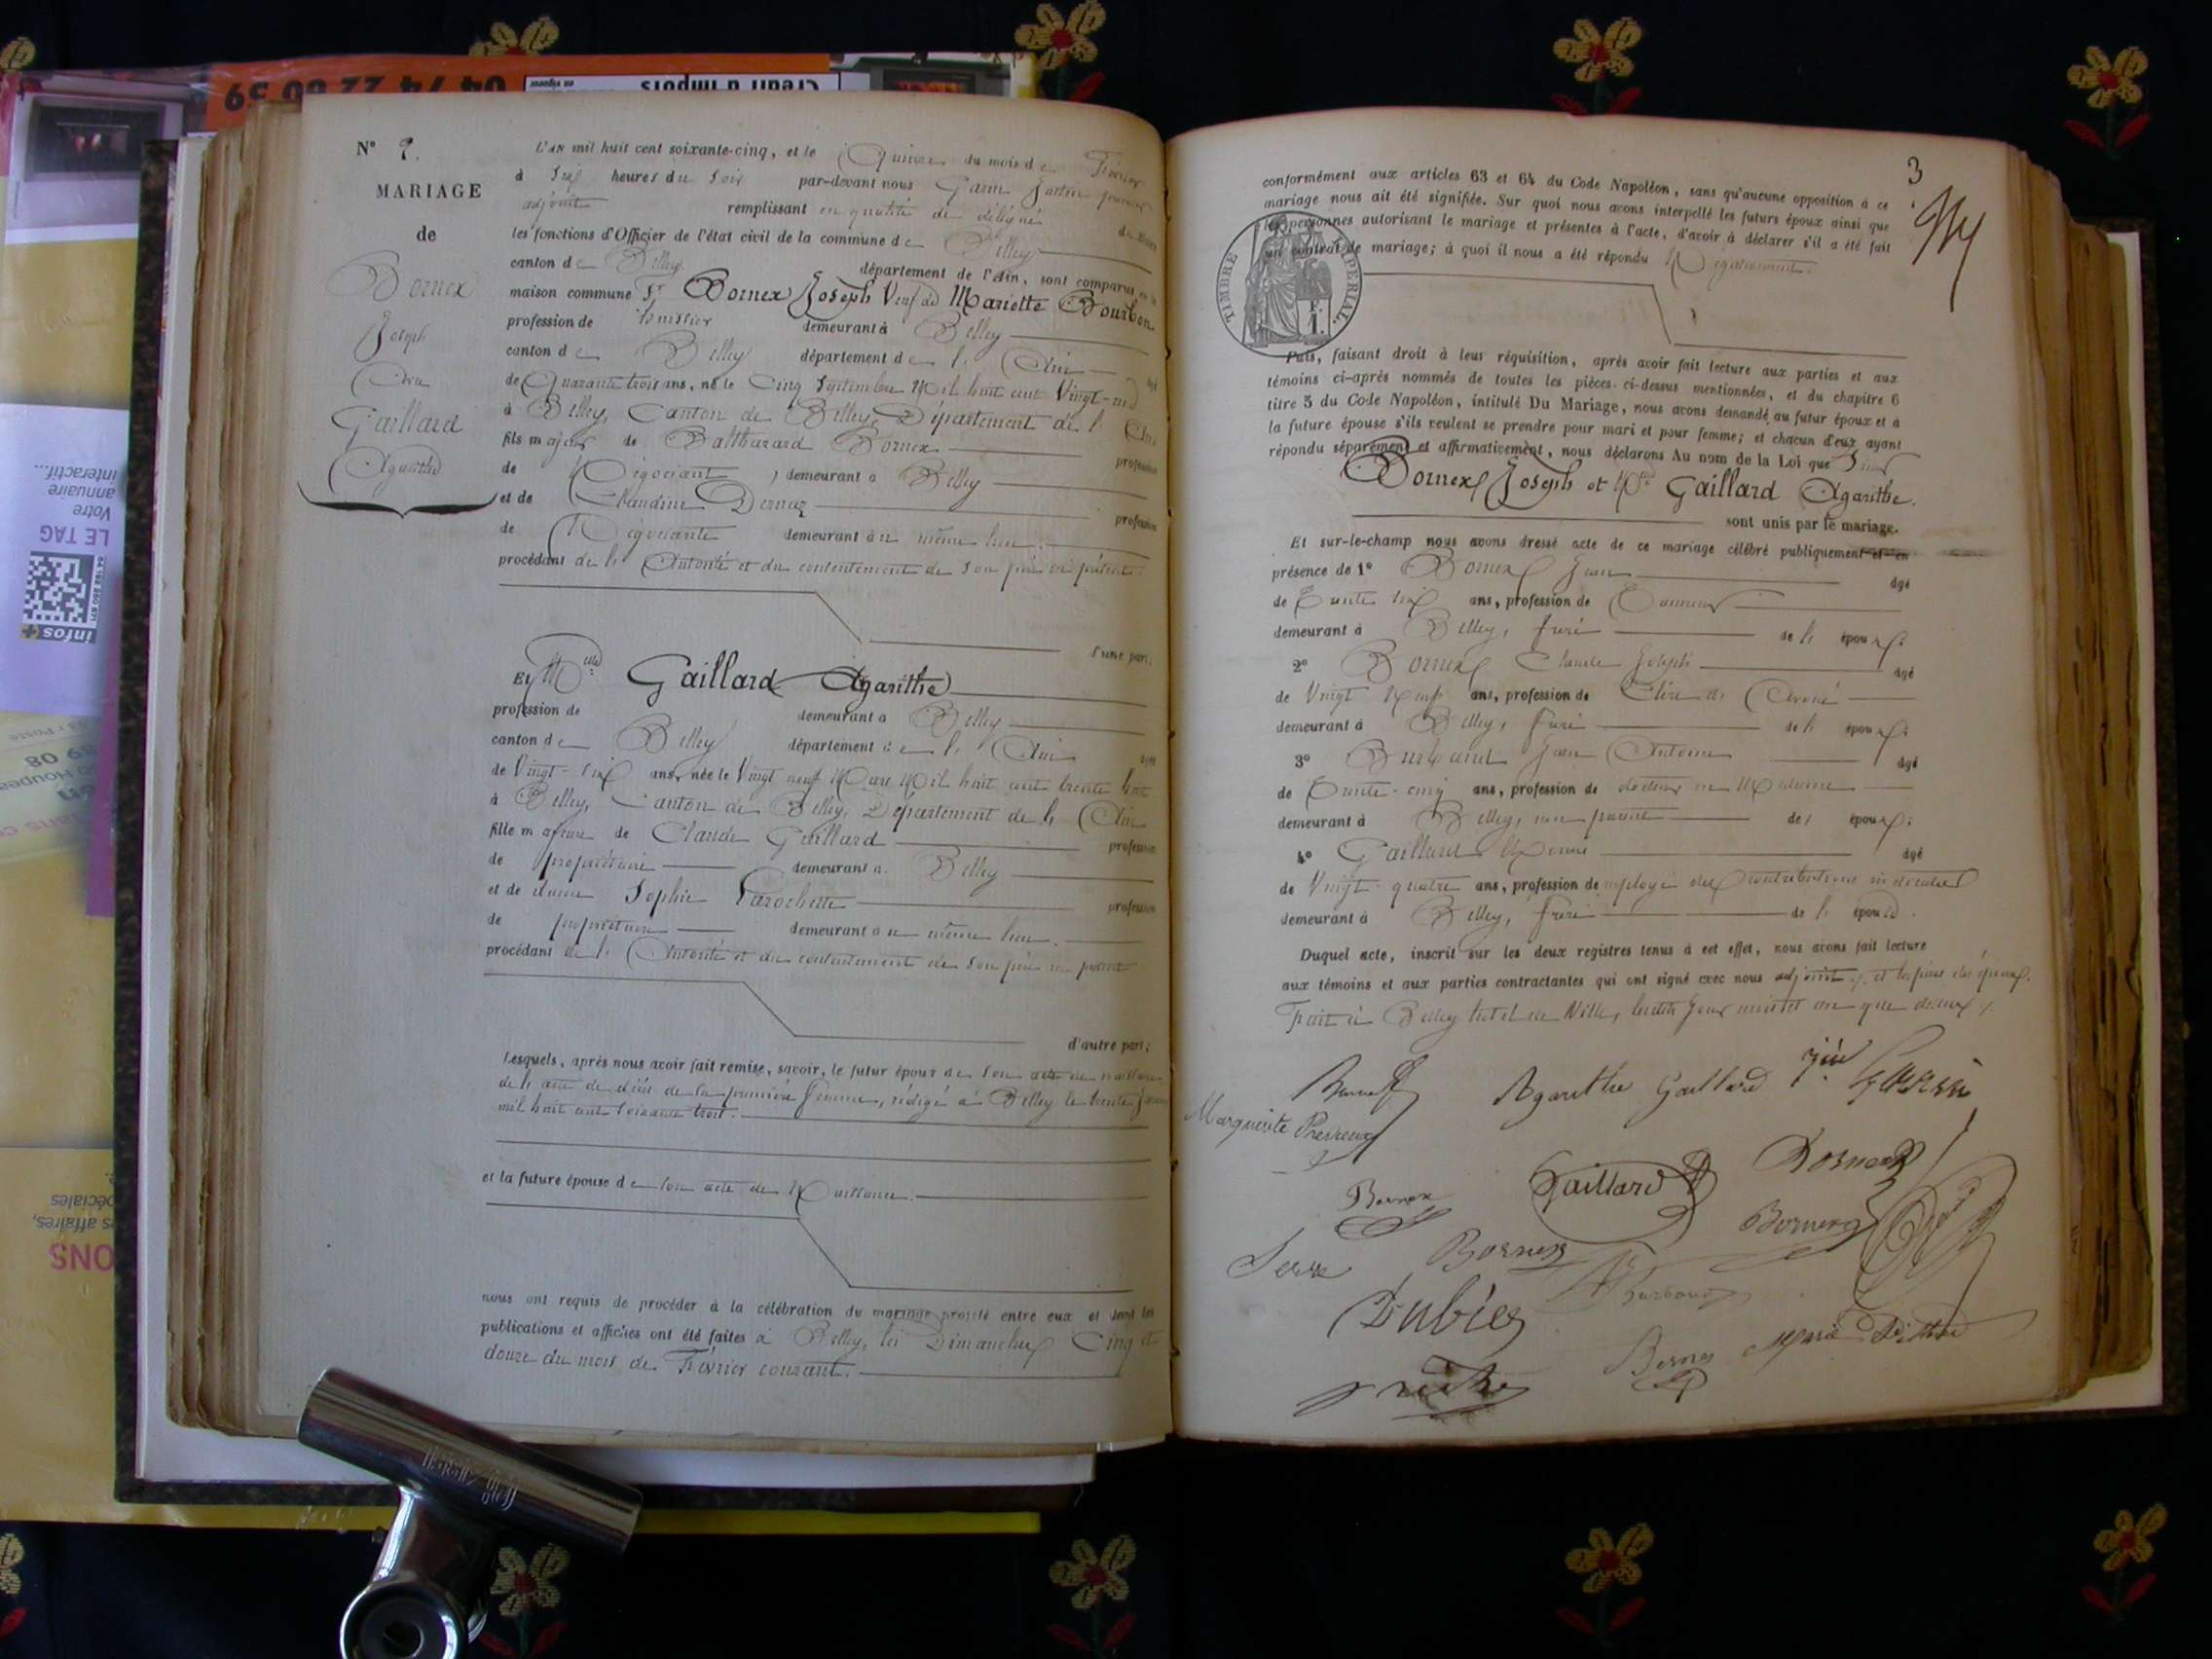 N° 9.
MARIAGE
de
Bornex
Joseph
Avec
Gaillard
Agarithe
L'AN mil huit cent soixante-cinq, et le Quinze du mois de Février
à Six heures du Soir par-devant nous premier
adjoint remplissant en qualité de délégué du Maire
les fonctions d'Officier de l'état civil de la commune de Belley
canton de Belley département de l'Ain, sont comparus en la
maison commune Sr Bornex Joseph Veuf de Mariette Bourbon
profession de demeurant à Belley
canton de Belley département de l'Ain âgé
de Quarante trois ans, né le Cinq Septembre Mil huit cent Vingt-un
à Belley, Canton de Belley, Département de l'Ain
fils majeur de Balthazard Bornex profession
de Négociant, demeurant à Belley
et de Claudine profession
de Négociante demeurant au même lieu.
procédant de l'Autorité et du consentement de son père ici présent.
d'une part;
Et Melle Gaillard Agarithe
profession de demeurant à Belley
canton de Belley département de l'Ain âgée
de Vingt-six ans, née le Vingt neuf Mars Mil huit cent trente huit
à Belley, Canton de Belley, Département de l'Ain
fille majeure de Claude Gaillard profession
de propriétaire demeurant à Belley
et de dame Sophie Larochette profession
de propriétaire demeurant au même lieu.
procédant de l'Autorité et du consentement de son père ici présent
d'autre part;
Lesquels, après nous avoir fait remise, savoir, le futur époux de son acte de naissance
de l'acte de décès de sa première femme, rédigé à Belley le trente
mil huit cent soixante trois.
et la future épouse de son acte de Naissance.
nous ont requis de procéder à la célébration du mariage projeté entre eux et dont les
publications et affiches ont été faites à Belley, les Dimanches Cinq et
douze du mois de Février courant.
3
conformément aux articles 63 et 64 du Code Napoléon, sans qu'aucune opposition à ce
mariage nous ait été signifiée. Sur quoi nous avons interpellé les futurs époux ainsi que
les personnes autorisant le mariage et présentes à l'acte, d'avoir à déclarer s'il a été fait
un contrat de mariage; à quoi il nous a été répondu Négativement.
TIMBRE IMPÉRIAL
Puis, faisant droit à leur réquisition, après avoir fait lecture aux parties et aux
témoins ci-après nommés de toutes les pièces ci-dessus mentionnées, et du chapitre 6
titre 5 du Code Napoléon, intitulé Du Mariage, nous avons demandé au futur époux et à
la future épouse s'ils veulent se prendre pour mari et pour femme; et chacun d'eux ayant
répondu séparément et affirmativement, nous déclarons Au nom de la Loi que Sieur
Bornex Joseph et Melle Gaillard Agarithe.
sont unis par le mariage.
Et sur-le-champ nous avons dressé acte de ce mariage célébré publiquement et en
présence de 1° Bornex Jean âgé
de Trente six ans, profession de Tanneur
demeurant à Belley, frère de l'époux;
2° Bornex Claude Joseph âgé
de Vingt Neuf ans, profession de Clerc d'Avoué
demeurant à Belley, frère de l'époux;
3° Jean Antoine âgé
de Trente-cinq ans, profession de docteur en Médecine
demeurant à Belley, non parent des époux;
4° Gaillard âgé
de Vingt-quatre ans, profession de employé des Contributions indirectes
demeurant à Belley, frère de l'épouse.
Duquel acte, inscrit sur les deux registres tenus à cet effet, nous avons fait lecture
aux témoins et aux parties contractantes qui ont signé avec nous adjoint, et les pères des époux.
Fait à Belley hôtel de Ville, lesdits jour mois et an que dessus,
Agarithe Gaillard
Marguerite
Gaillard
Bornex
Bornex
Serre
Bornex
Dubiez